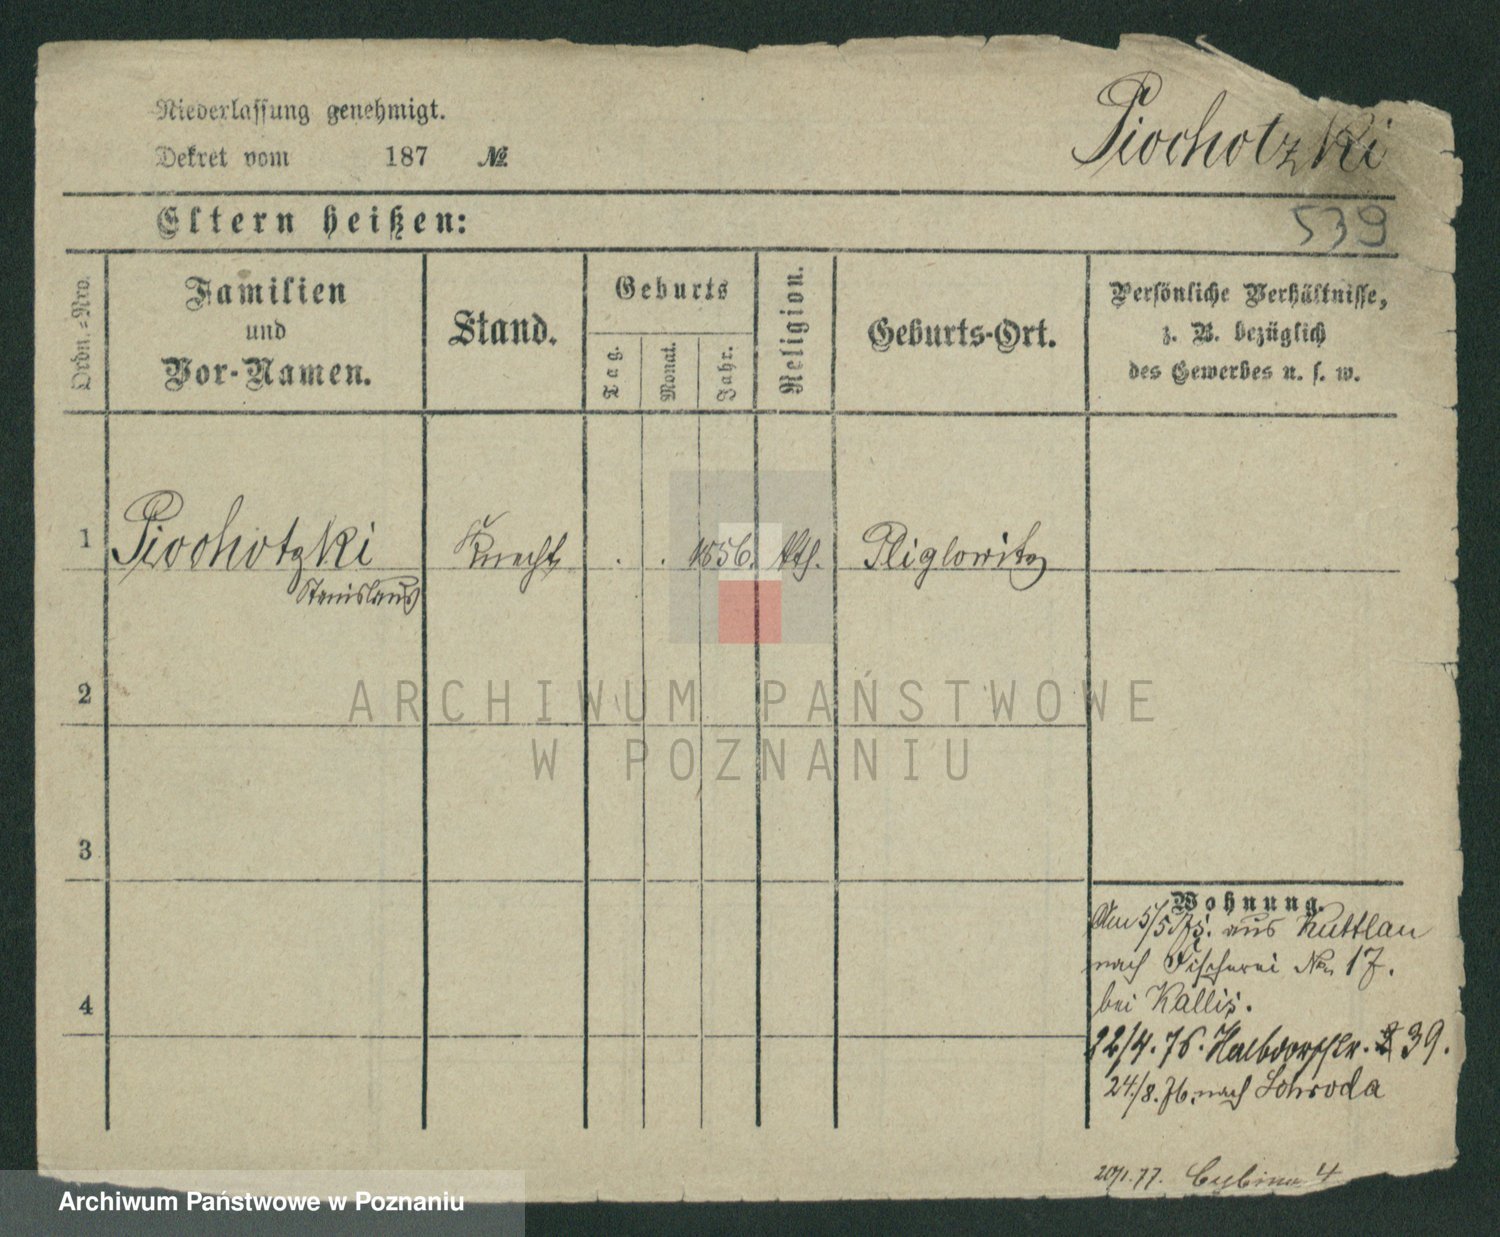 Niederlassung genehmigt.
Dekret vom 187 №
Piochotzki
Eltern heißen:
539
Ordn.=Nro.
Familien
und
Vor-Namen.
Stand.
Geburts
Tag.
Monat.
Jahr.
Religion.
Geburts-Ort.
Persönliche Verhältnisse,
z. B. bezüglich
des Gewerbes u. s. w.
1 Piochotzki Knecht . . 1856. kth. Pliglowitz
Stanislaus
2
ARCHIWUM PAŃSTWOWE
W POZNANIU
3
Wohnung.
Am 5/5 75. aus Kuttlau
nach Fischerei No 17.
bei Kallis.
4
22/4. 76. Halbdorfstr. 39.
24/8. 76. nach Schroda
20/1. 77. Cybina 4
Archiwum Państwowe w Poznaniu